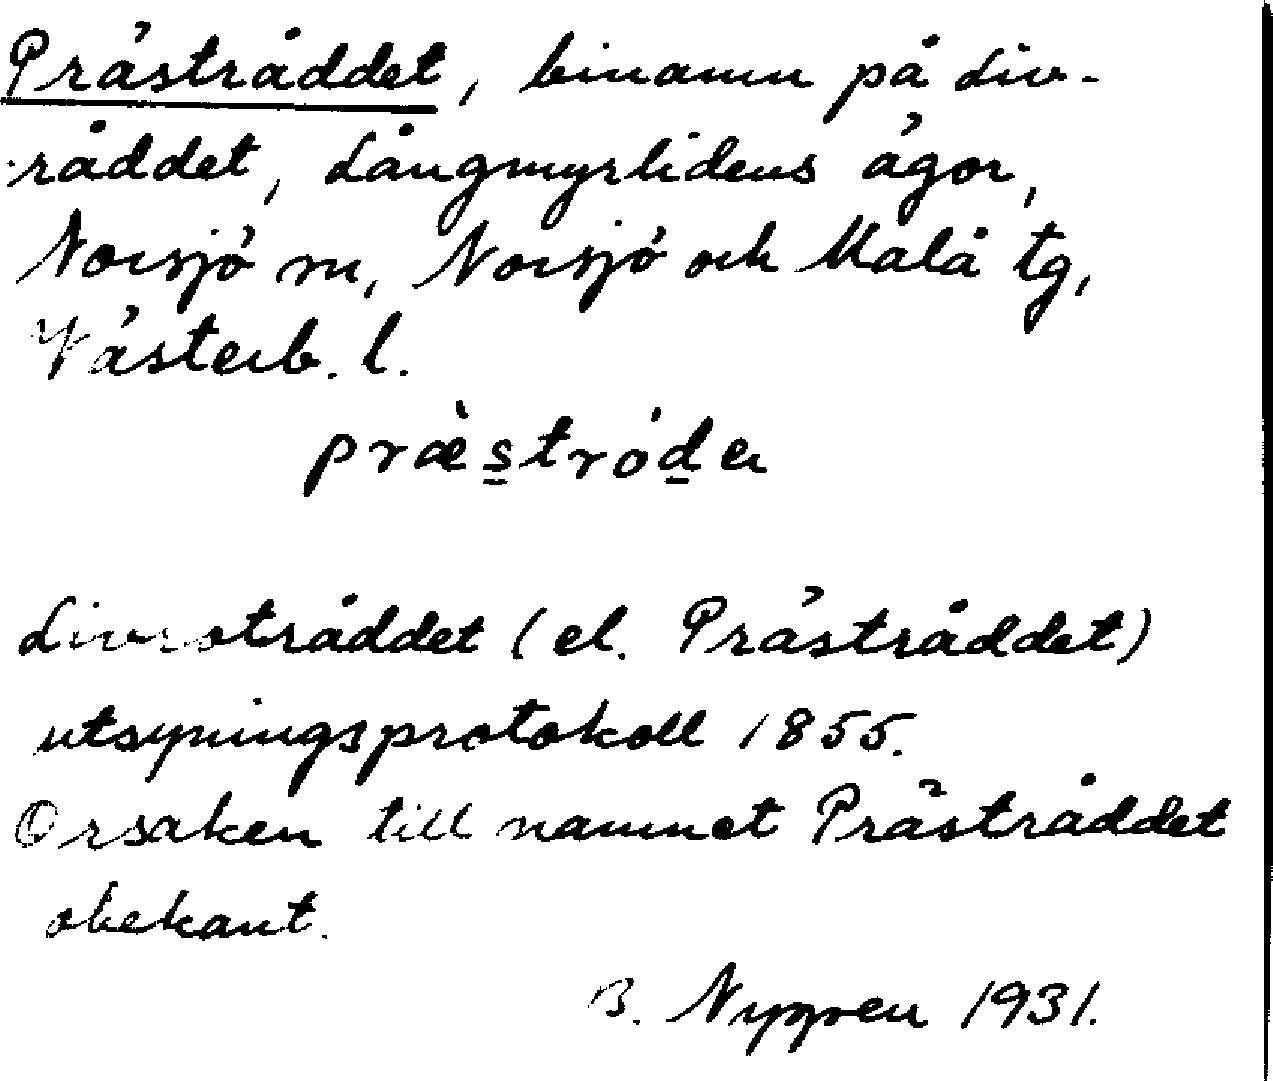 Prästråddet, binamn på Liv-
råddet, Långmyrlidens ägor,
Norsjö sn, Norsjö och Malå tg,
Västerb. l.
præ̀stródɐ
(el. Prästråddet)
utsyningsprotokoll 1855.
Orsaken till namnet Prästråddet
obekant.
B. Nygren 1931.